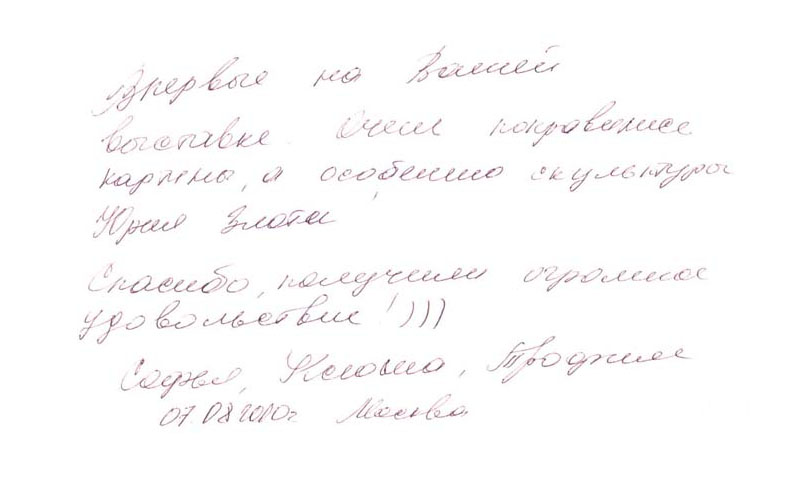 Впервые на Вашей
выставке. Очень понравились
картины, а особенно скульптуры
Юрия Злоти
Спасибо, получили огромное
удовольствие!)))
Софья, Ксюша, Трофим
07.08.2010г. Москва